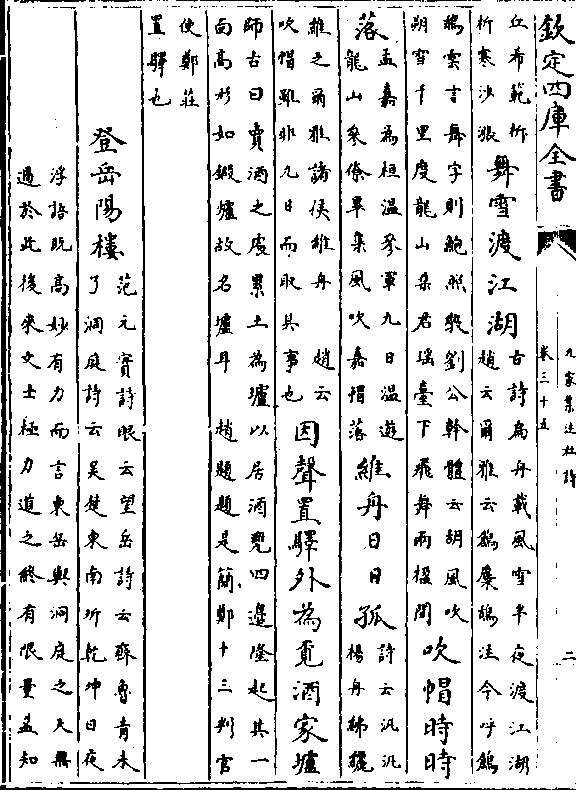 欽定四庫全書
九家集注杜詩
卷三十五
二
丘希範析
析寒沙漲
舞雪渡江湖
古詩扁舟載風雪半夜渡江湖
趙云爾雅云鶬麋鴰注今呼鶬
鶬雲言舞字則鮑照斆劉公幹體云胡風吹
朔雪千里度龍山集君瑤臺下飛舞兩楹間
吹帽時時
落
孟嘉為桓溫參軍九日溫遊
龍山參僚畢集風吹嘉帽落
維舟日日孤
詩云汎汎
楊舟紼纚
維之爾雅諸侯維舟 趙云
吹帽雖非九日而取其事也
因聲置驛外為覓酒家壚
師古曰賣酒之處累土為壚以居酒甕四邊隆起其一
面高形如鍛爐故名壚耳 趙題題是簡鄭十三判官
使鄭莊
置驛也
登岳陽樓
范元實詩眼云望岳詩云齊魯青未
了洞庭詩云吳楚東南坼乾坤日夜
浮語既高妙有力而言東岳與洞庭之大無
過於此後來文士極力道之終有限量益知